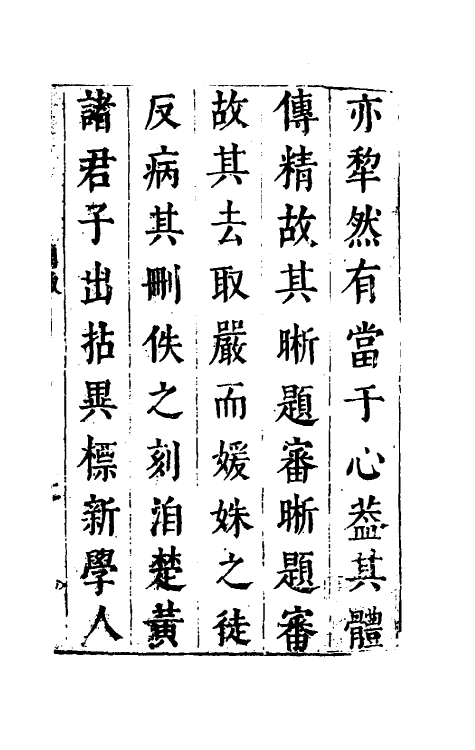 亦犂然有當于心葢其體
傳精故其晰題審晰題審
故其去取嚴而媛姝之徒
反病其刪佚之刻洎楚黃
諸君子出拈異標新學人